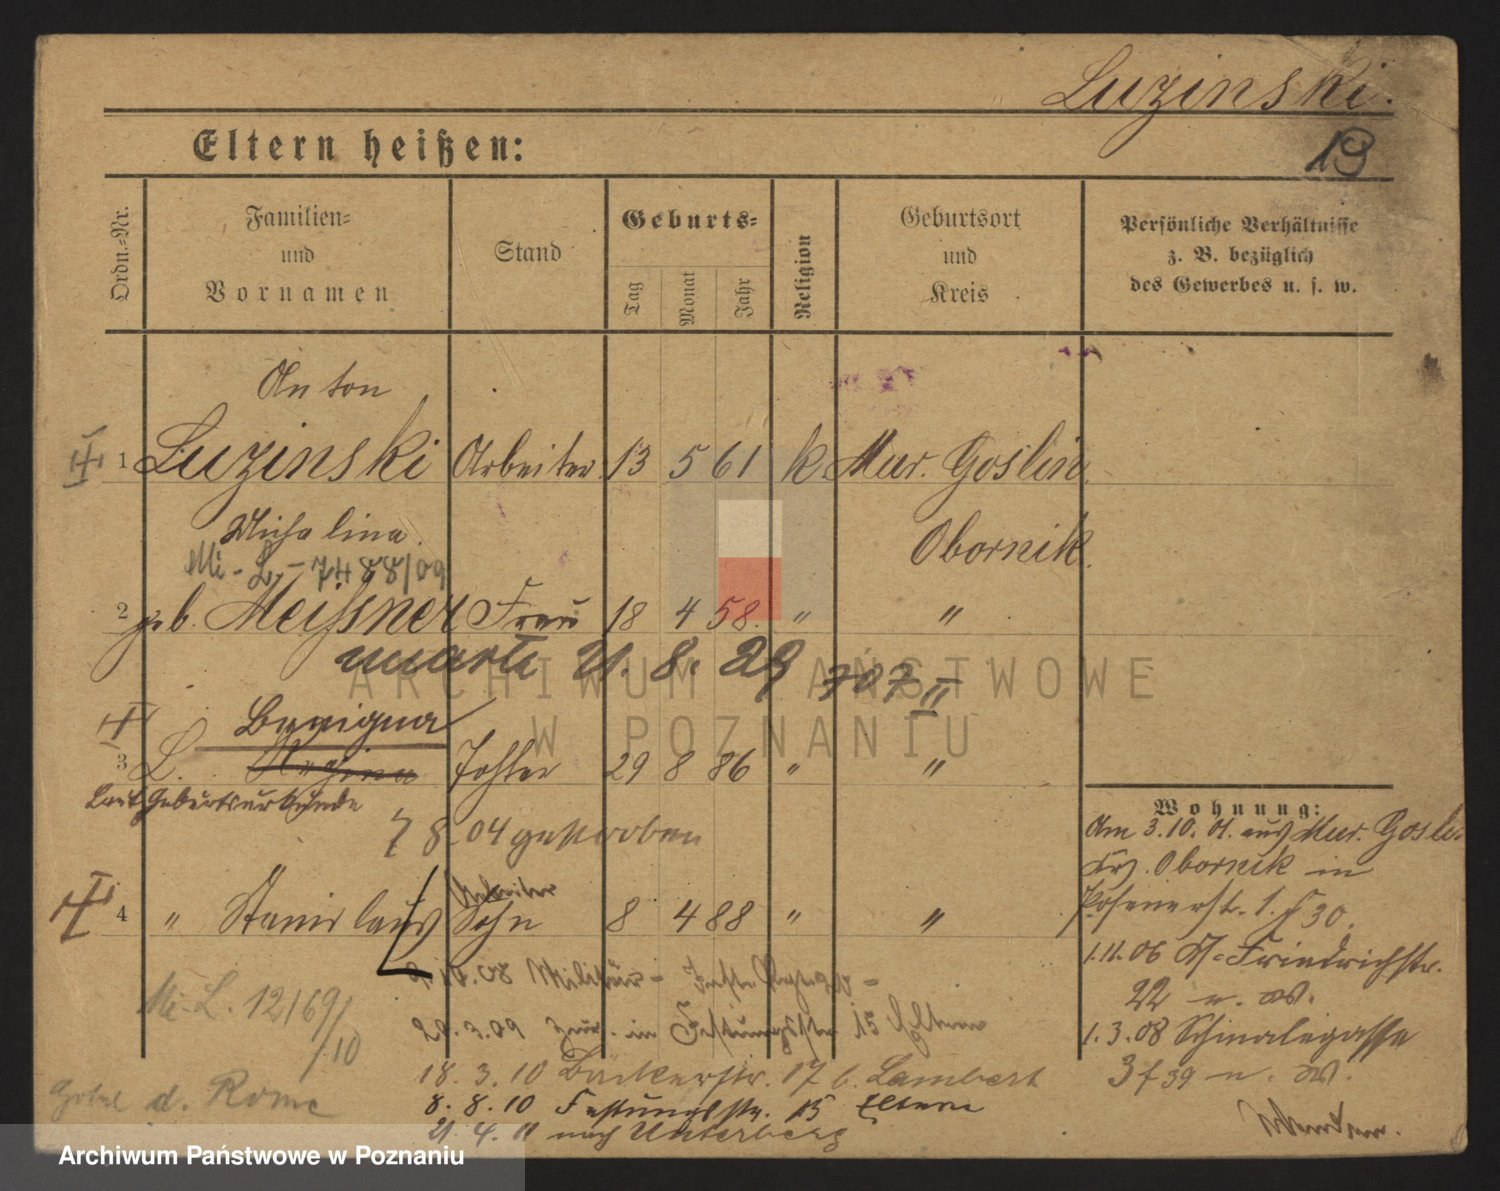 Luzinski.
19
Eltern heißen:
Ordn.-Nr.
Familien-
und
Vornamen
Stand
Geburts-
Tag
Monat
Jahr
Religion
Geburtsort
und
Kreis
Persönliche Verhältnisse
z. B. bezüglich
des Gewerbes u. s. w.
Anton
1 Luzinski Arbeiter 13 5 61 k. Mur. Goslin
Michalina. Obornik.
Mi-L-7488/09
2 geb. Meissner Frau 18 4 58. " "
21. 8. 29 707 II
Benigna
3 L. Regina Tochter 29 8 86 " "
laut Geburtsurkunde
7 8. 04 gestorben
Arbeiter
4 " Stanislaus Sohn 8 4 88 " "
Mi-L. 12169/
/10
08 Militär-
20.3.09 in Festungsstr 15 Eltern
18. 3. 10 Bäckerstr. 17 b. Lambert
8. 8. 10 Festungsstr. 15 Eltern
21 4. 11 nach Unterberg
d. Rome
Wohnung:
Am 3. 10. 01. aus Mur. Goslin
Krs. Obornik in
Posenerstr. 1. f 30.
1.11.06 Friedrichstr.
22
1. 3. 08 Schmalegasse
3 f 39
ARCHIWUM PAŃSTWOWE
W POZNANIU
Archiwum Państwowe w Poznaniu